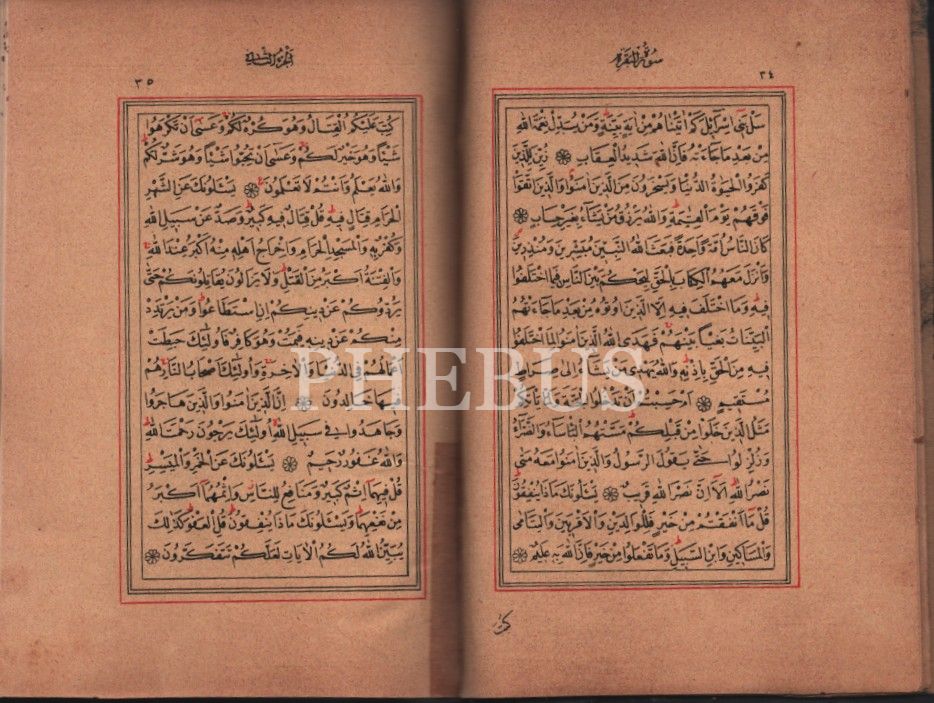 سورة البقرة
٣٤
سَلْ بَنِي إِسْرَائِيلَ كَمْ آتَيْنَاهُمْ مِنْ آيَةٍ بَيِّنَةٍ وَمَنْ يُبَدِّلْ نِعْمَةَ اللهِ
مِنْ بَعْدِ مَا جَاءَتْهُ فَإِنَّ اللهَ شَدِيدُ الْعِقَابِ زُيِّنَ لِلَّذِينَ
كَفَرُوا الْحَيٰوةُ الدُّنْيَا وَيَسْخَرُونَ مِنَ الَّذِينَ آمَنُوا وَالَّذِينَ اتَّقَوْا
فَوْقَهُمْ يَوْمَ الْقِيٰمَةِ وَاللهُ يَرْزُقُ مَنْ يَشَاءُ بِغَيْرِ حِسَابٍ
كَانَ النَّاسُ أُمَّةً وَاحِدَةً فَبَعَثَ اللهُ النَّبِيِّينَ مُبَشِّرِينَ وَمُنْذِرِينَ
وَأَنْزَلَ مَعَهُمُ الْكِتَابَ بِالْحَقِّ لِيَحْكُمَ بَيْنَ النَّاسِ فِيمَا اخْتَلَفُوا
فِيهِ وَمَا اخْتَلَفَ فِيهِ إِلَّا الَّذِينَ أُوتُوهُ مِنْ بَعْدِ مَا جَاءَتْهُمُ
الْبَيِّنَاتُ بَغْيًا بَيْنَهُمْ فَهَدَى اللهُ الَّذِينَ آمَنُوا لِمَا اخْتَلَفُوا
فِيهِ مِنَ الْحَقِّ بِإِذْنِهِ وَاللهُ يَهْدِي مَنْ يَشَاءُ إِلَى صِرَاطٍ
مُسْتَقِيمٍ أَمْ حَسِبْتُمْ أَنْ تَدْخُلُوا الْجَنَّةَ وَلَمَّا يَأْتِكُمْ
مَثَلُ الَّذِينَ خَلَوْا مِنْ قَبْلِكُمْ مَسَّتْهُمُ الْبَأْسَاءُ وَالضَّرَّاءُ
وَزُلْزِلُوا حَتَّى يَقُولَ الرَّسُولُ وَالَّذِينَ آمَنُوا مَعَهُ مَتَى
نَصْرُ اللهِ أَلَا إِنَّ نَصْرَ اللهِ قَرِيبٌ يَسْئَلُونَكَ مَاذَا يُنْفِقُونَ
قُلْ مَا أَنْفَقْتُمْ مِنْ خَيْرٍ فَلِلْوَالِدَيْنِ وَالْأَقْرَبِينَ وَالْيَتَامَى
وَالْمَسَاكِينِ وَابْنِ السَّبِيلِ وَمَا تَفْعَلُوا مِنْ خَيْرٍ فَإِنَّ اللهَ بِهِ عَلِيمٌ
٣٥
كُتِبَ عَلَيْكُمُ الْقِتَالُ وَهُوَ كُرْهٌ لَكُمْ وَعَسَى أَنْ تَكْرَهُوا
شَيْئًا وَهُوَ خَيْرٌ لَكُمْ وَعَسَى أَنْ تُحِبُّوا شَيْئًا وَهُوَ شَرٌّ لَكُمْ
وَاللهُ يَعْلَمُ وَأَنْتُمْ لَا تَعْلَمُونَ يَسْئَلُونَكَ عَنِ الشَّهْرِ
الْحَرَامِ قِتَالٍ فِيهِ قُلْ قِتَالٌ فِيهِ كَبِيرٌ وَصَدٌّ عَنْ سَبِيلِ اللهِ
وَكُفْرٌ بِهِ وَالْمَسْجِدِ الْحَرَامِ وَإِخْرَاجُ أَهْلِهِ مِنْهُ أَكْبَرُ عِنْدَ اللهِ
وَالْفِتْنَةُ أَكْبَرُ مِنَ الْقَتْلِ وَلَا يَزَالُونَ يُقَاتِلُونَكُمْ حَتَّى
يَرُدُّوكُمْ عَنْ دِينِكُمْ إِنِ اسْتَطَاعُوا وَمَنْ يَرْتَدِدْ
مِنْكُمْ عَنْ دِينِهِ فَيَمُتْ وَهُوَ كَافِرٌ فَأُولَئِكَ حَبِطَتْ
أَعْمَالُهُمْ فِي الدُّنْيَا وَالْآخِرَةِ وَأُولَئِكَ أَصْحَابُ النَّارِ هُمْ
فِيهَا خَالِدُونَ إِنَّ الَّذِينَ آمَنُوا وَالَّذِينَ هَاجَرُوا
وَجَاهَدُوا فِي سَبِيلِ اللهِ أُولَئِكَ يَرْجُونَ رَحْمَتَ اللهِ
وَاللهُ غَفُورٌ رَحِيمٌ يَسْئَلُونَكَ عَنِ الْخَمْرِ وَالْمَيْسِرِ
قُلْ فِيهِمَا إِثْمٌ كَبِيرٌ وَمَنَافِعُ لِلنَّاسِ وَإِثْمُهُمَا أَكْبَرُ
مِنْ نَفْعِهِمَا وَيَسْئَلُونَكَ مَاذَا يُنْفِقُونَ قُلِ الْعَفْوَ كَذَلِكَ
يُبَيِّنُ اللهُ لَكُمُ الْآيَاتِ لَعَلَّكُمْ تَتَفَكَّرُونَ
PHEBUS